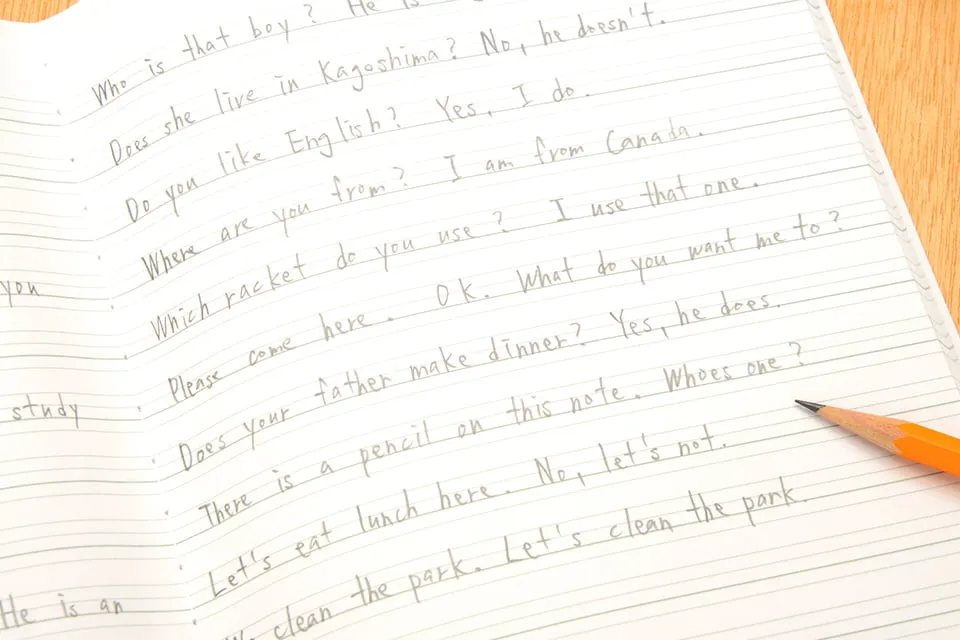 Who is that boy? He is
Does she live in Kagoshima? No, he doesn't.
Do you like English? Yes, I do.
Where are you from? I am from Canada.
Which racket do you use? I use that one.
Please come here. OK. What do you want me to?
Does your father make dinner? Yes, he does.
There is a pencil on this note. Whoes one?
Let's eat lunch here. No, let's not.
clean the park. Let's clean the park.
you
study
He is an